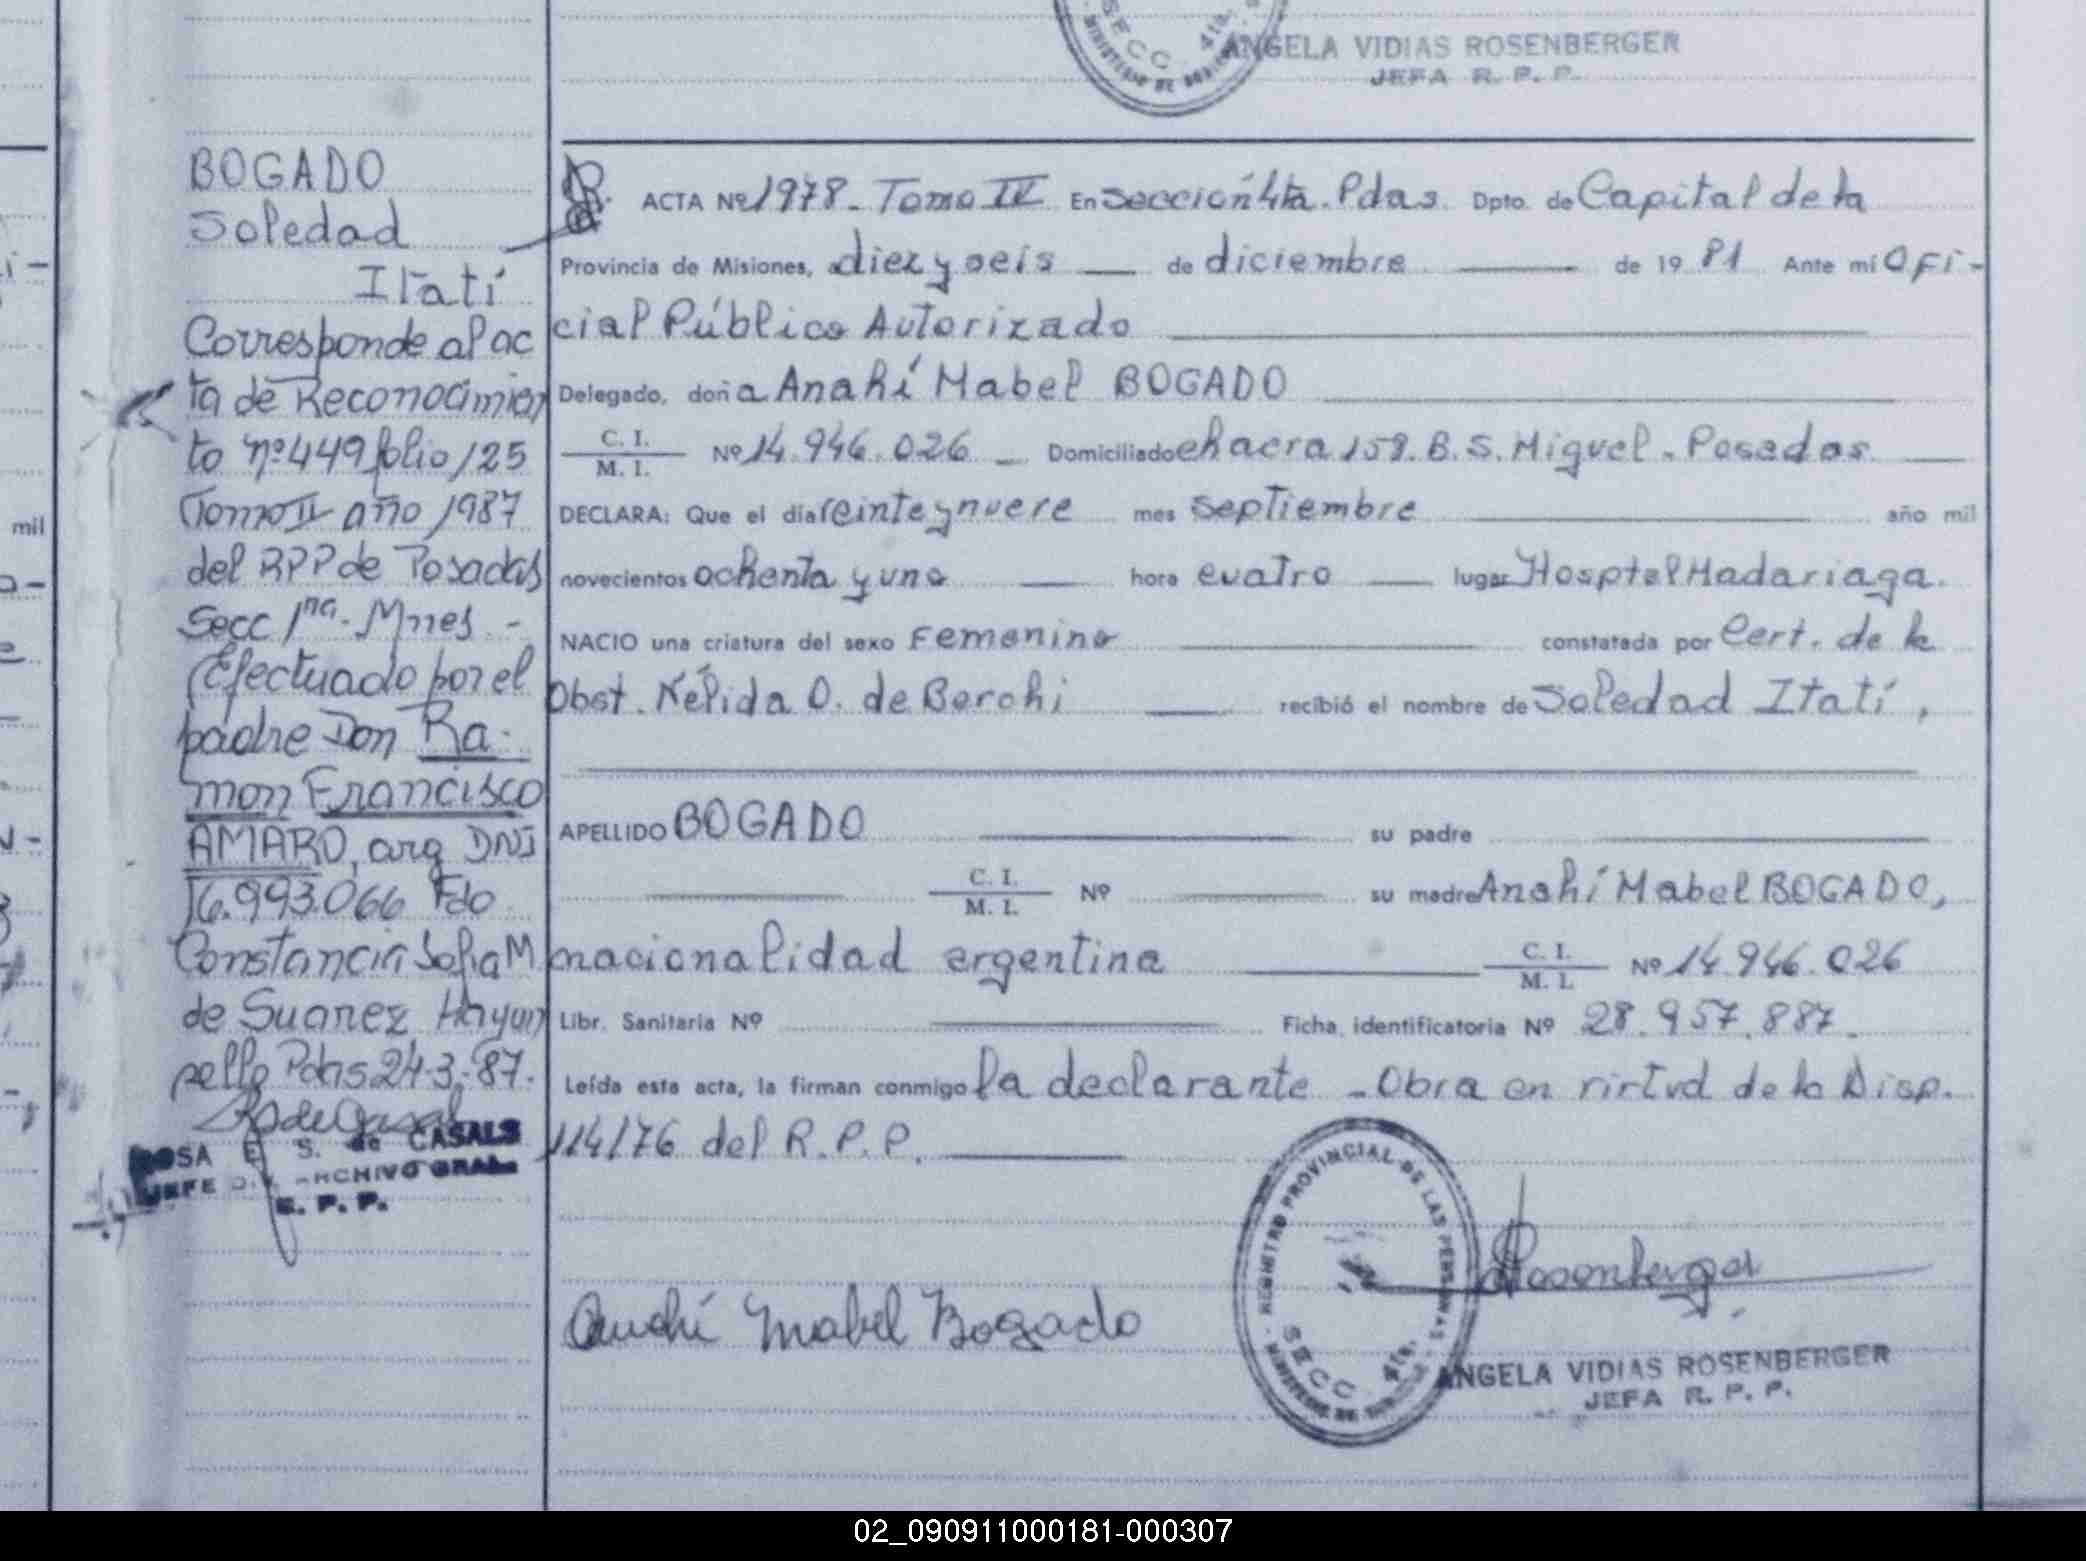 ANGELA VIDIAS ROSENBERGER
JEFA R. P. P.
SECC 4ta.
BOGADO
Soledad
Itatí
Corresponde al ac
ta de Reconocimien
to nº 449 folio 125
Tomo II año 1987
del RPP de Posadas
Secc 1ra. Mnes -
Efectuado por el
padre Don Ra
mon Francisco
AMARO, arg DNI
16.993.066 Fdo
Constancia Sofia M
de Suarez
Pdas 24-3-87.
ROSA E. S. de CASALS
JEFE ARCHIVO GRAL
R. P. P.
ACTA Nº 1978 - Tomo IV En Sección 4ta. Pdas. Dpto. de Capital de la
Provincia de Misiones, a diez y seis — de diciembre — de 19 81 Ante mí Ofi-
cial Público Autorizado
Delegado, doña Anahí Mabel BOGADO
C. I.
M. I.
Nº 14.946.026 — Domiciliado chacra 159. B. S. Miguel - Posadas —
DECLARA: Que el día veinte y nueve mes septiembre año mil
novecientos ochenta y uno — hora cuatro — lugar Hosptal Madariaga.
NACIO una criatura del sexo Femenino constatada por Cert. de la
Obst. Nélida O. de recibió el nombre de Soledad Itatí,
APELLIDO BOGADO su padre
C. I.
M. I.
Nº su madre Anahí Mabel BOGADO,
nacionalidad argentina C. I.
M. I.
Nº 14.946.026
Libr. Sanitaria Nº Ficha identificatoria Nº 28.957.887.
Leída esta acta, la firman conmigo la declarante - Obra en virtud de la Disp.
114/76 del R.P.P.
Anahí Mabel Bogado
REGISTRO PROVINCIAL DE LAS PERSONAS
SECC 4ta.
MINISTERIO DE GOBIERNO
Rosenberger
ANGELA VIDIAS ROSENBERGER
JEFA R. P. P.
mil
02_090911000181-000307